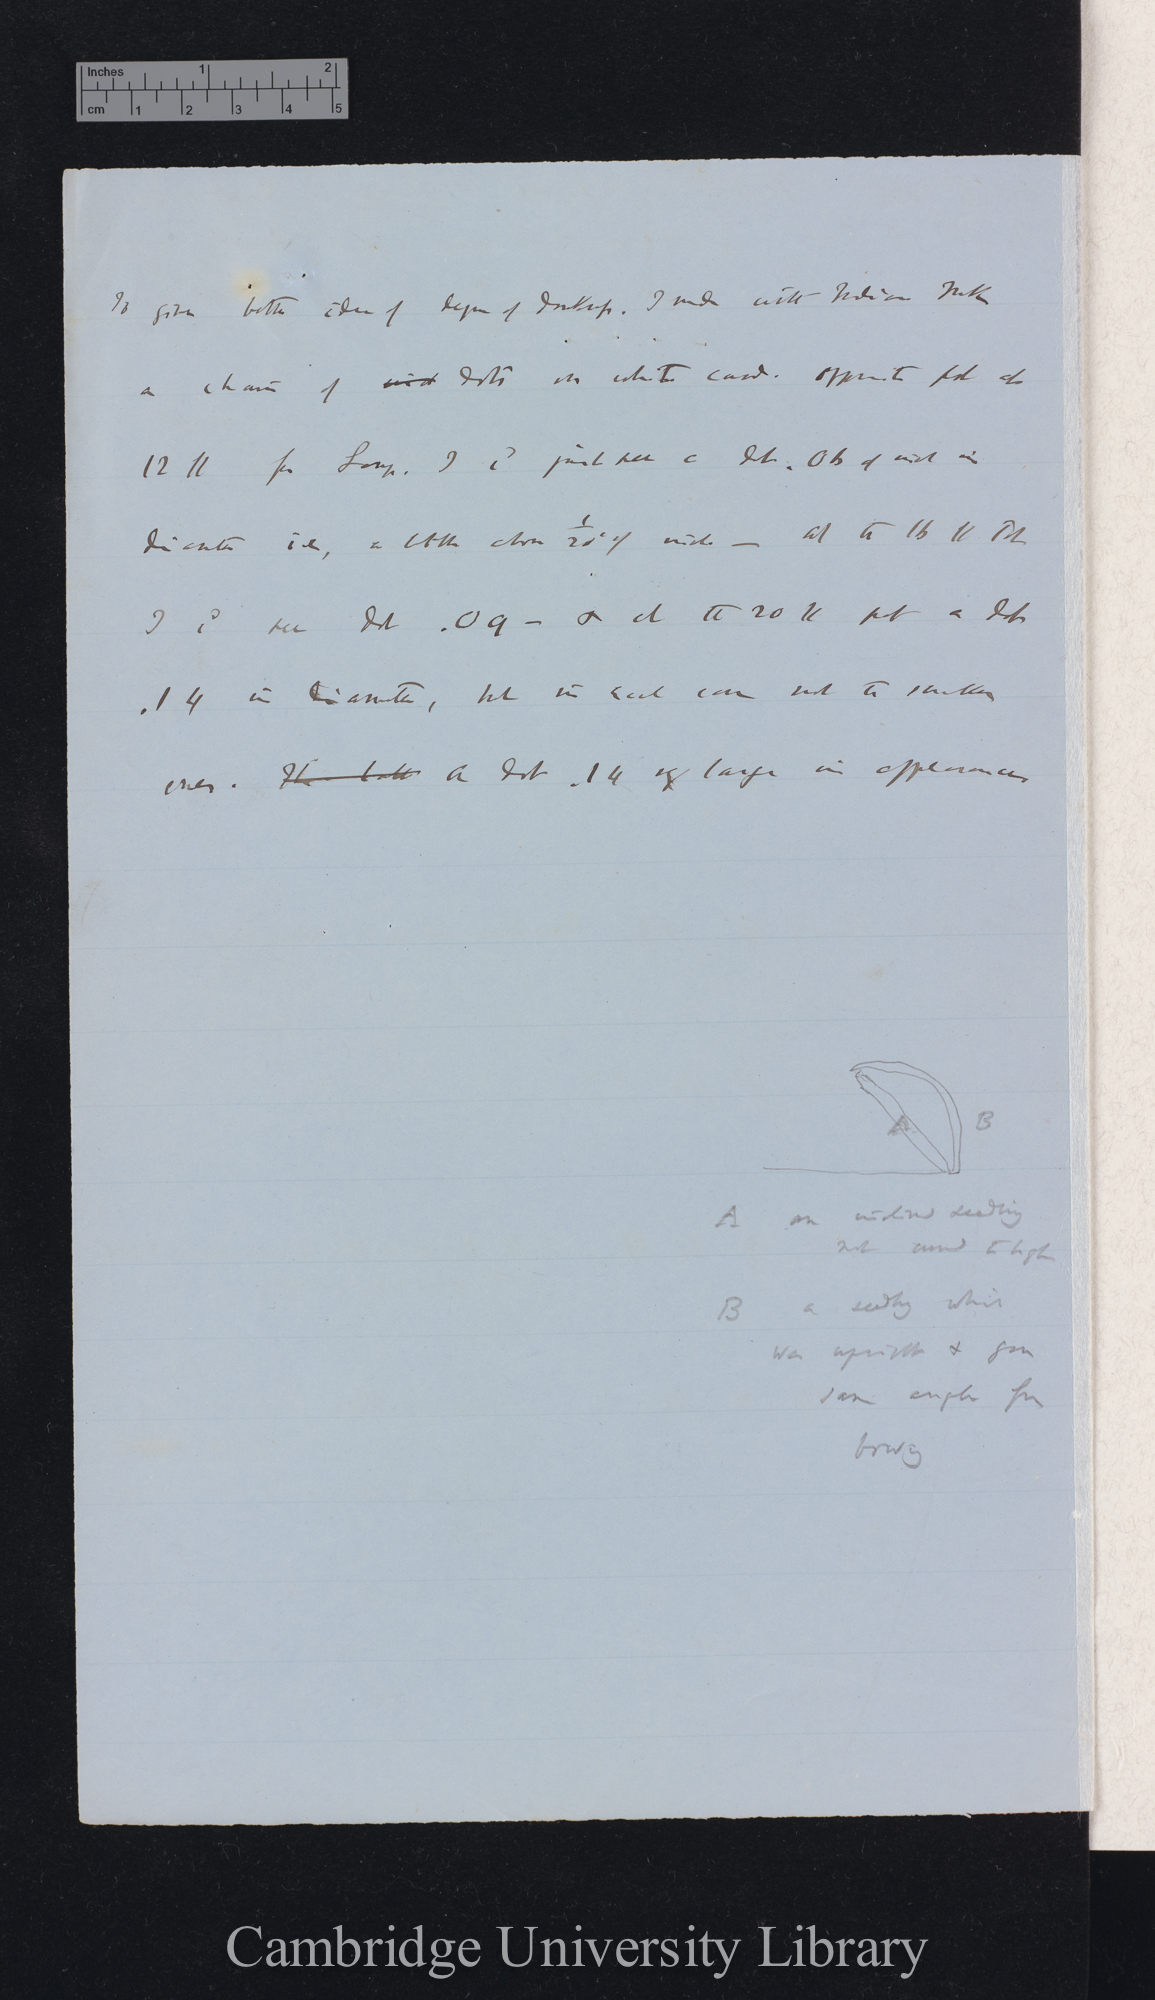 Inches 1 2
cm 1 2 3 4 5
To give better idea of degree of darkness. I made with Indian Ink
a chain of dots on white card. opposite pot at
12 ft from Lamp. I cd just see a dot .06 of inch in
diameter ie, a little above 1/20 of inch — at the 16 ft Pot
I cd see dot .09 — & at the 20 ft pot a dot
.14 in diameter, but in each case not the smaller
ones. A dot .14 large in appearance
A B
A an inclined seedling
not curved to light
B a seedling which
was upright & gave
same angle from
bowing
Cambridge University Library